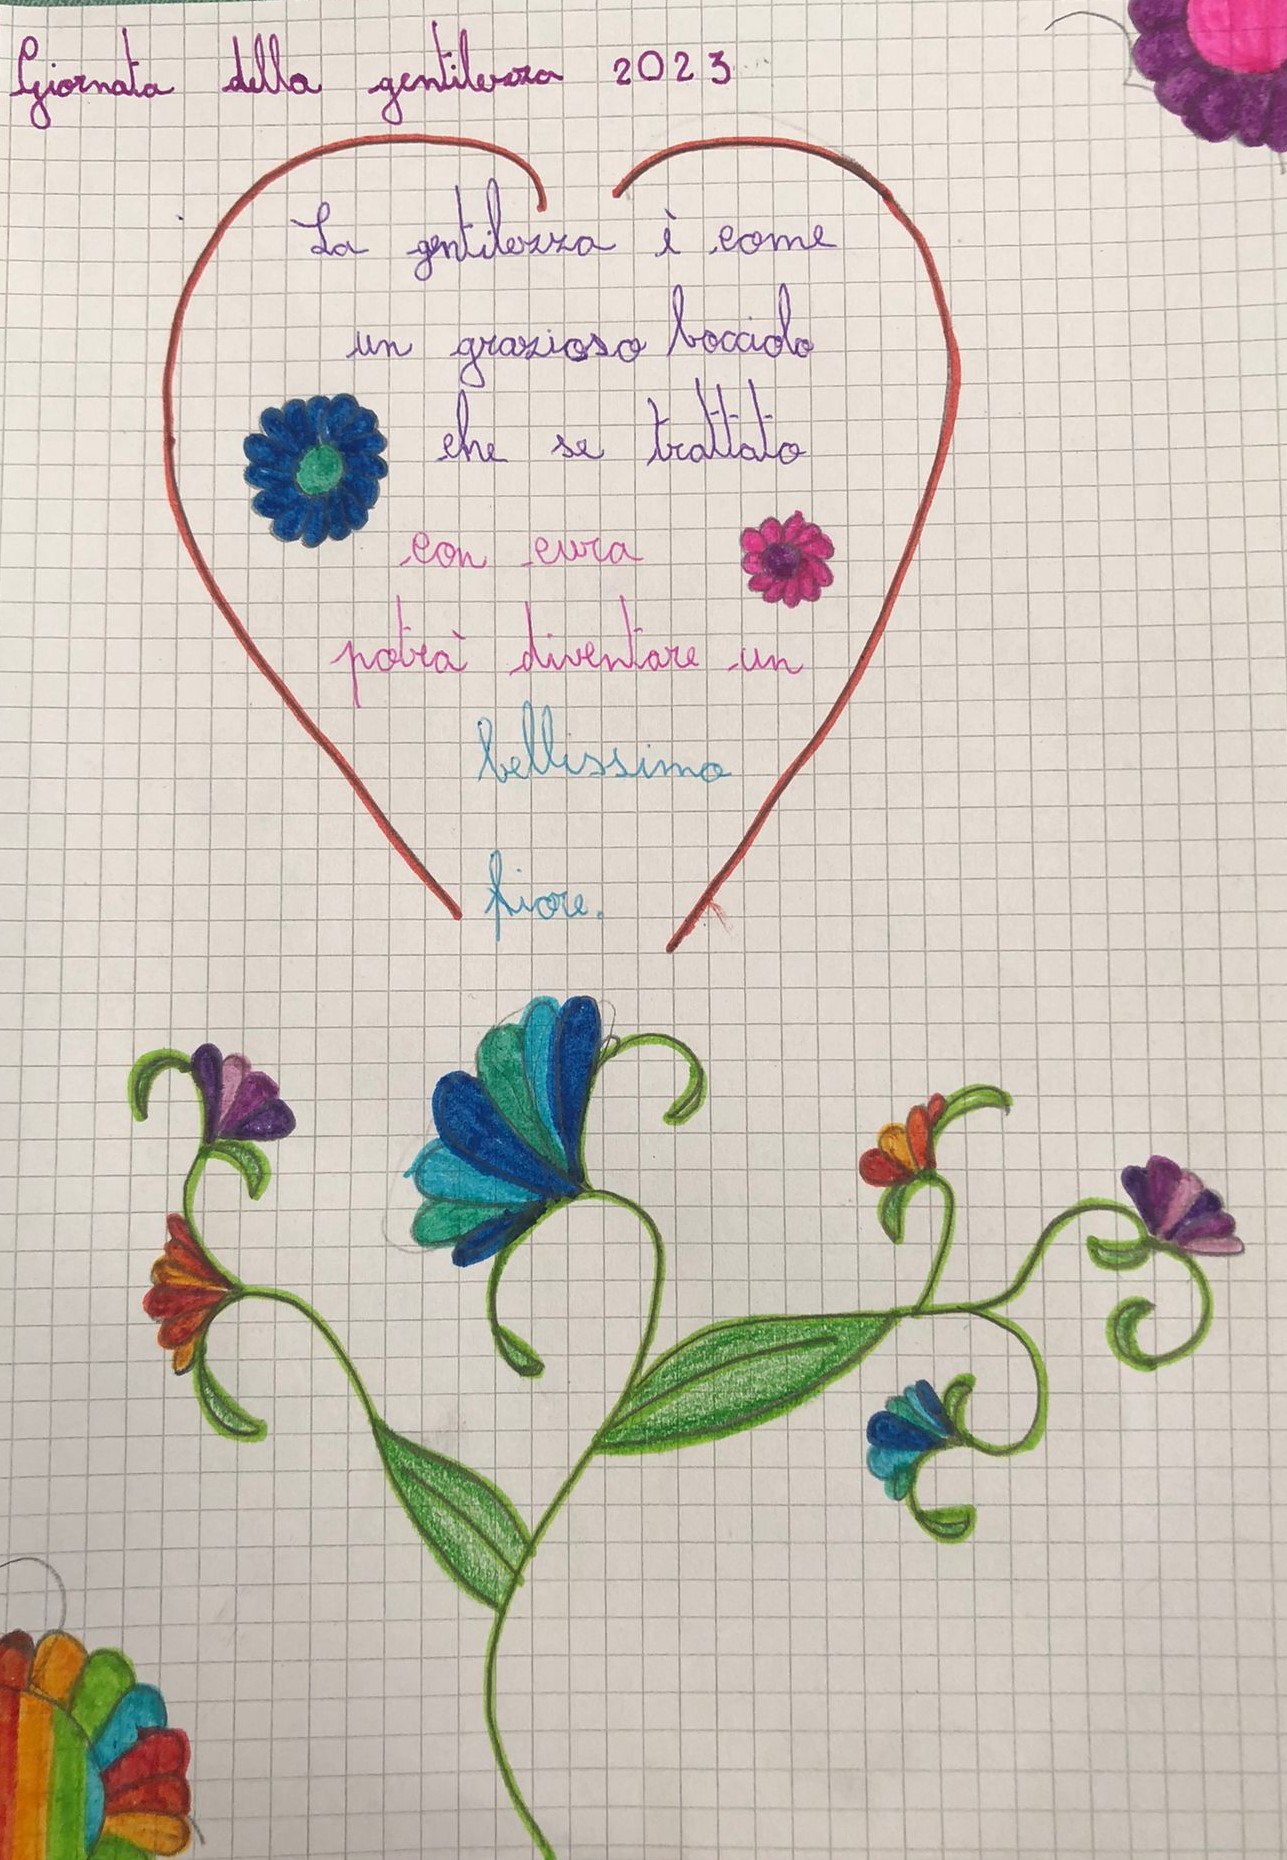 Giornata della gentilezza 2023
La gentilezza è come
un grazioso bocciolo
che se trattato
con cura
potrà diventare un
bellissimo
fiore.